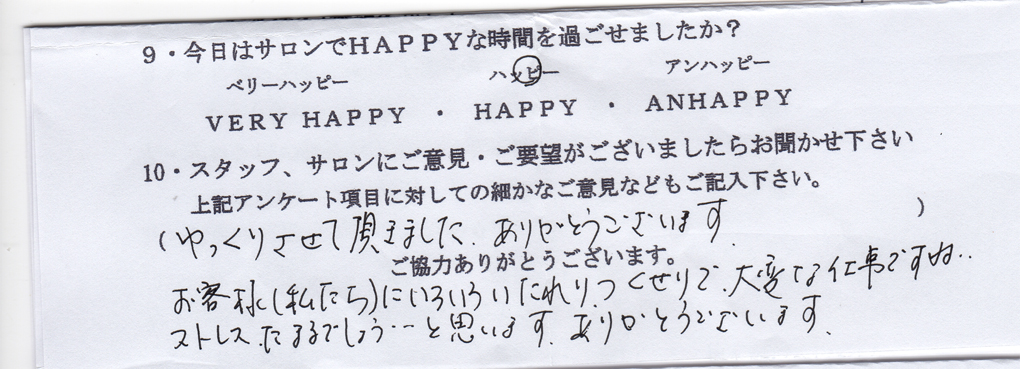 9・今日はサロンでHAPPYな時間を過ごせましたか?
ベリーハッピー ハッピー アンハッピー
VERY HAPPY ・ HAPPY ・ ANHAPPY
10・スタッフ、サロンにご意見・ご要望がございましたらお聞かせ下さい
上記アンケート項目に対しての細かなご意見などもご記入下さい。
(ゆっくりさせて頂きました。ありがとうございます。)
ご協力ありがとうございます。
お客様(私たち)にいろいろいたれりつくせりで、大変な仕事ですね..
ストレスたまるでしょう…と思います。ありがとうございます。